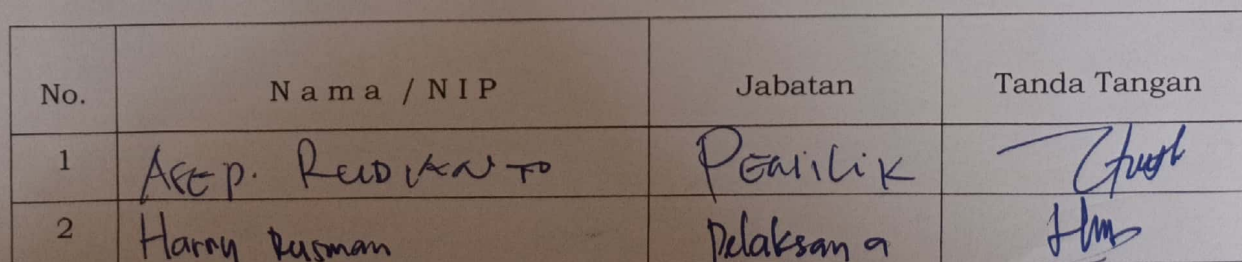 No. Nama / NIP Jabatan Tanda Tangan
1 Asep. Rudianto Penilik
2 Harry Rusman Pelaksana